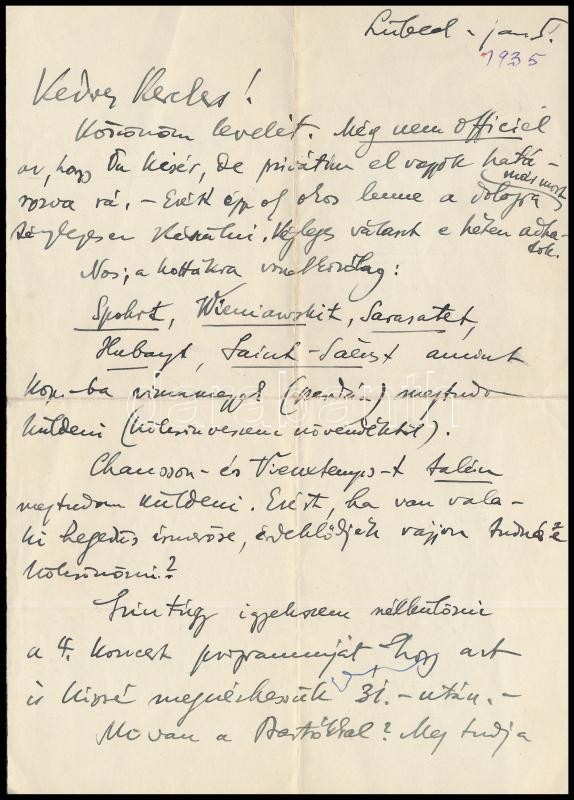 Lübeck - jan 5.
1935
Kedves Kerekes!
Köszönöm levelét. Még nem officiel
az, hogy Ön kisér, de privátim el vagyok hatá-
rozva rá. - Ezért épp oly okos lenne a dologra már most
készülni. Végleges választ e héten adha-
tok.
Nos, a kottákra vonatkozólag:
Spohrt, Wieniawskit, Sarasatet,
Hubayt, Saint-Saënst amint
-ba visszamegyek megtudom
küldeni (kölcsönveszem növendéktől).
Chausson- és Vieuxtemps-t talán
megtudom küldeni. Ezért, ha van vala-
ki hegedűs ismerőse, érdeklődjék vajjon tudná-e
kölcsönözni?
Szintúgy igyekszem nélkülözni
a 4. koncert programmját hogy azt
is kissé megnézhessük 31.-után. -
Mi van a Bartókkal? Meg tudja
parabanth